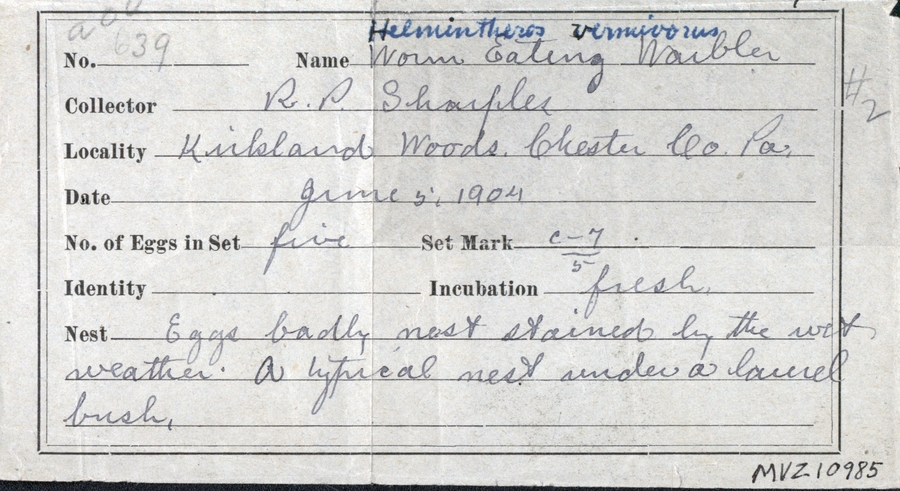 Helmintheros vermivorus
No. 639 Name Worm Eating Warbler
Collector R. P. Sharples
#2
Locality Kirkland Woods. Chester Co. Pa.
Date June 5, 1904
No. of Eggs in Set five Set Mark c-7/5
Identity Incubation fresh.
Nest Eggs badly nest stained by the wet
weather. A typical nest under a laurel
bush.
MVZ 10985